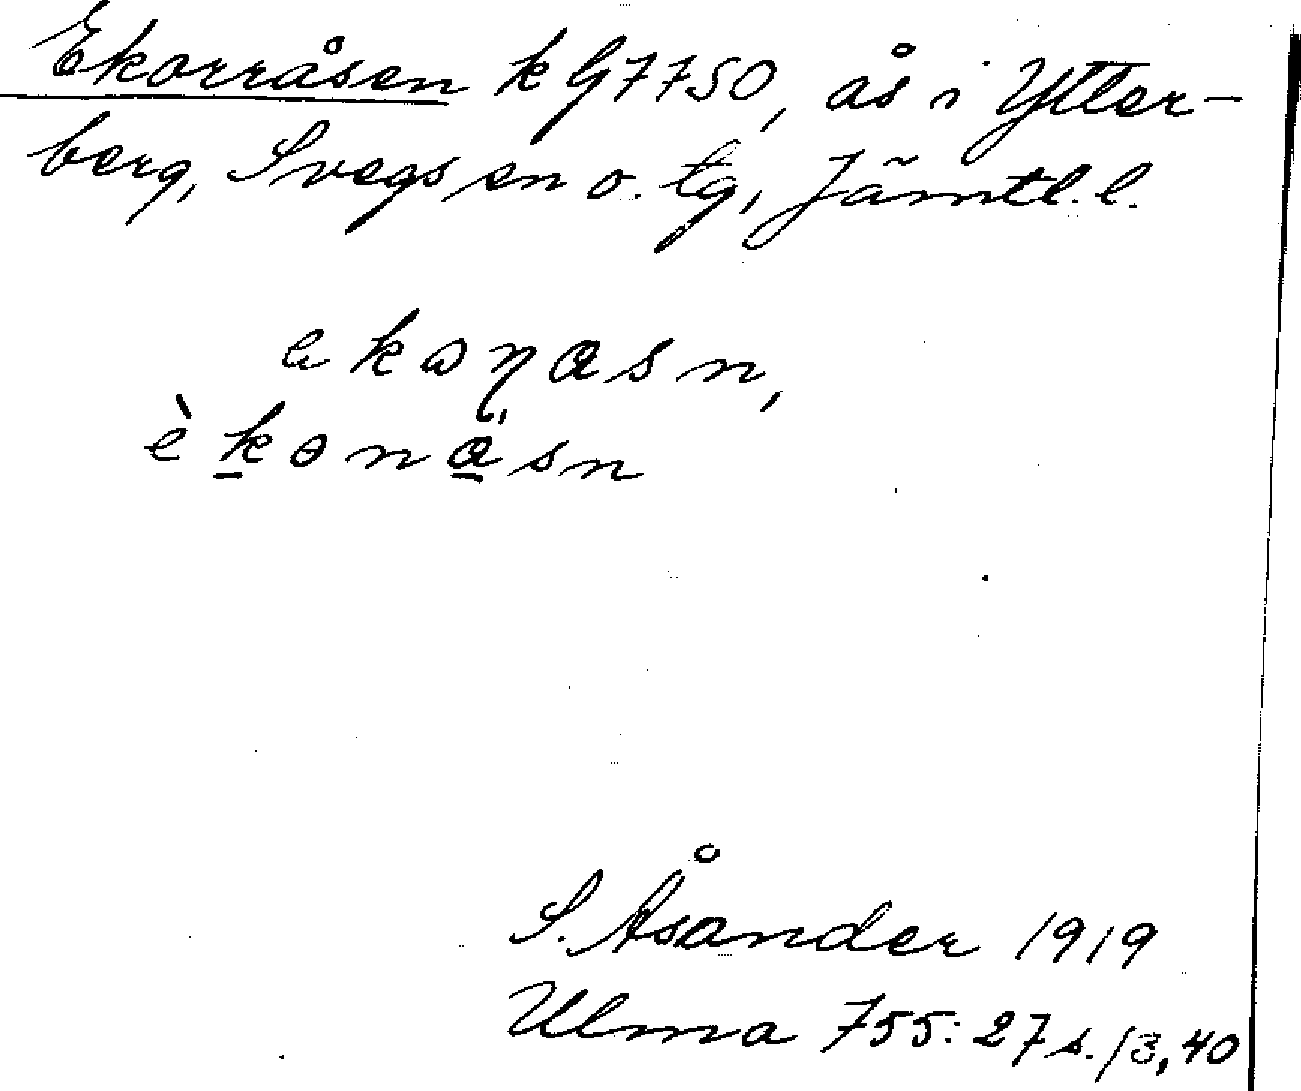 Ekorråsen k G7750, ås i Ytter-
berg, Svegs sn o. tg, Jämtl. l.
ekoŋasn,
èkonåsn
S. Åsander 1919
Ulma 755:27 s. 13,40